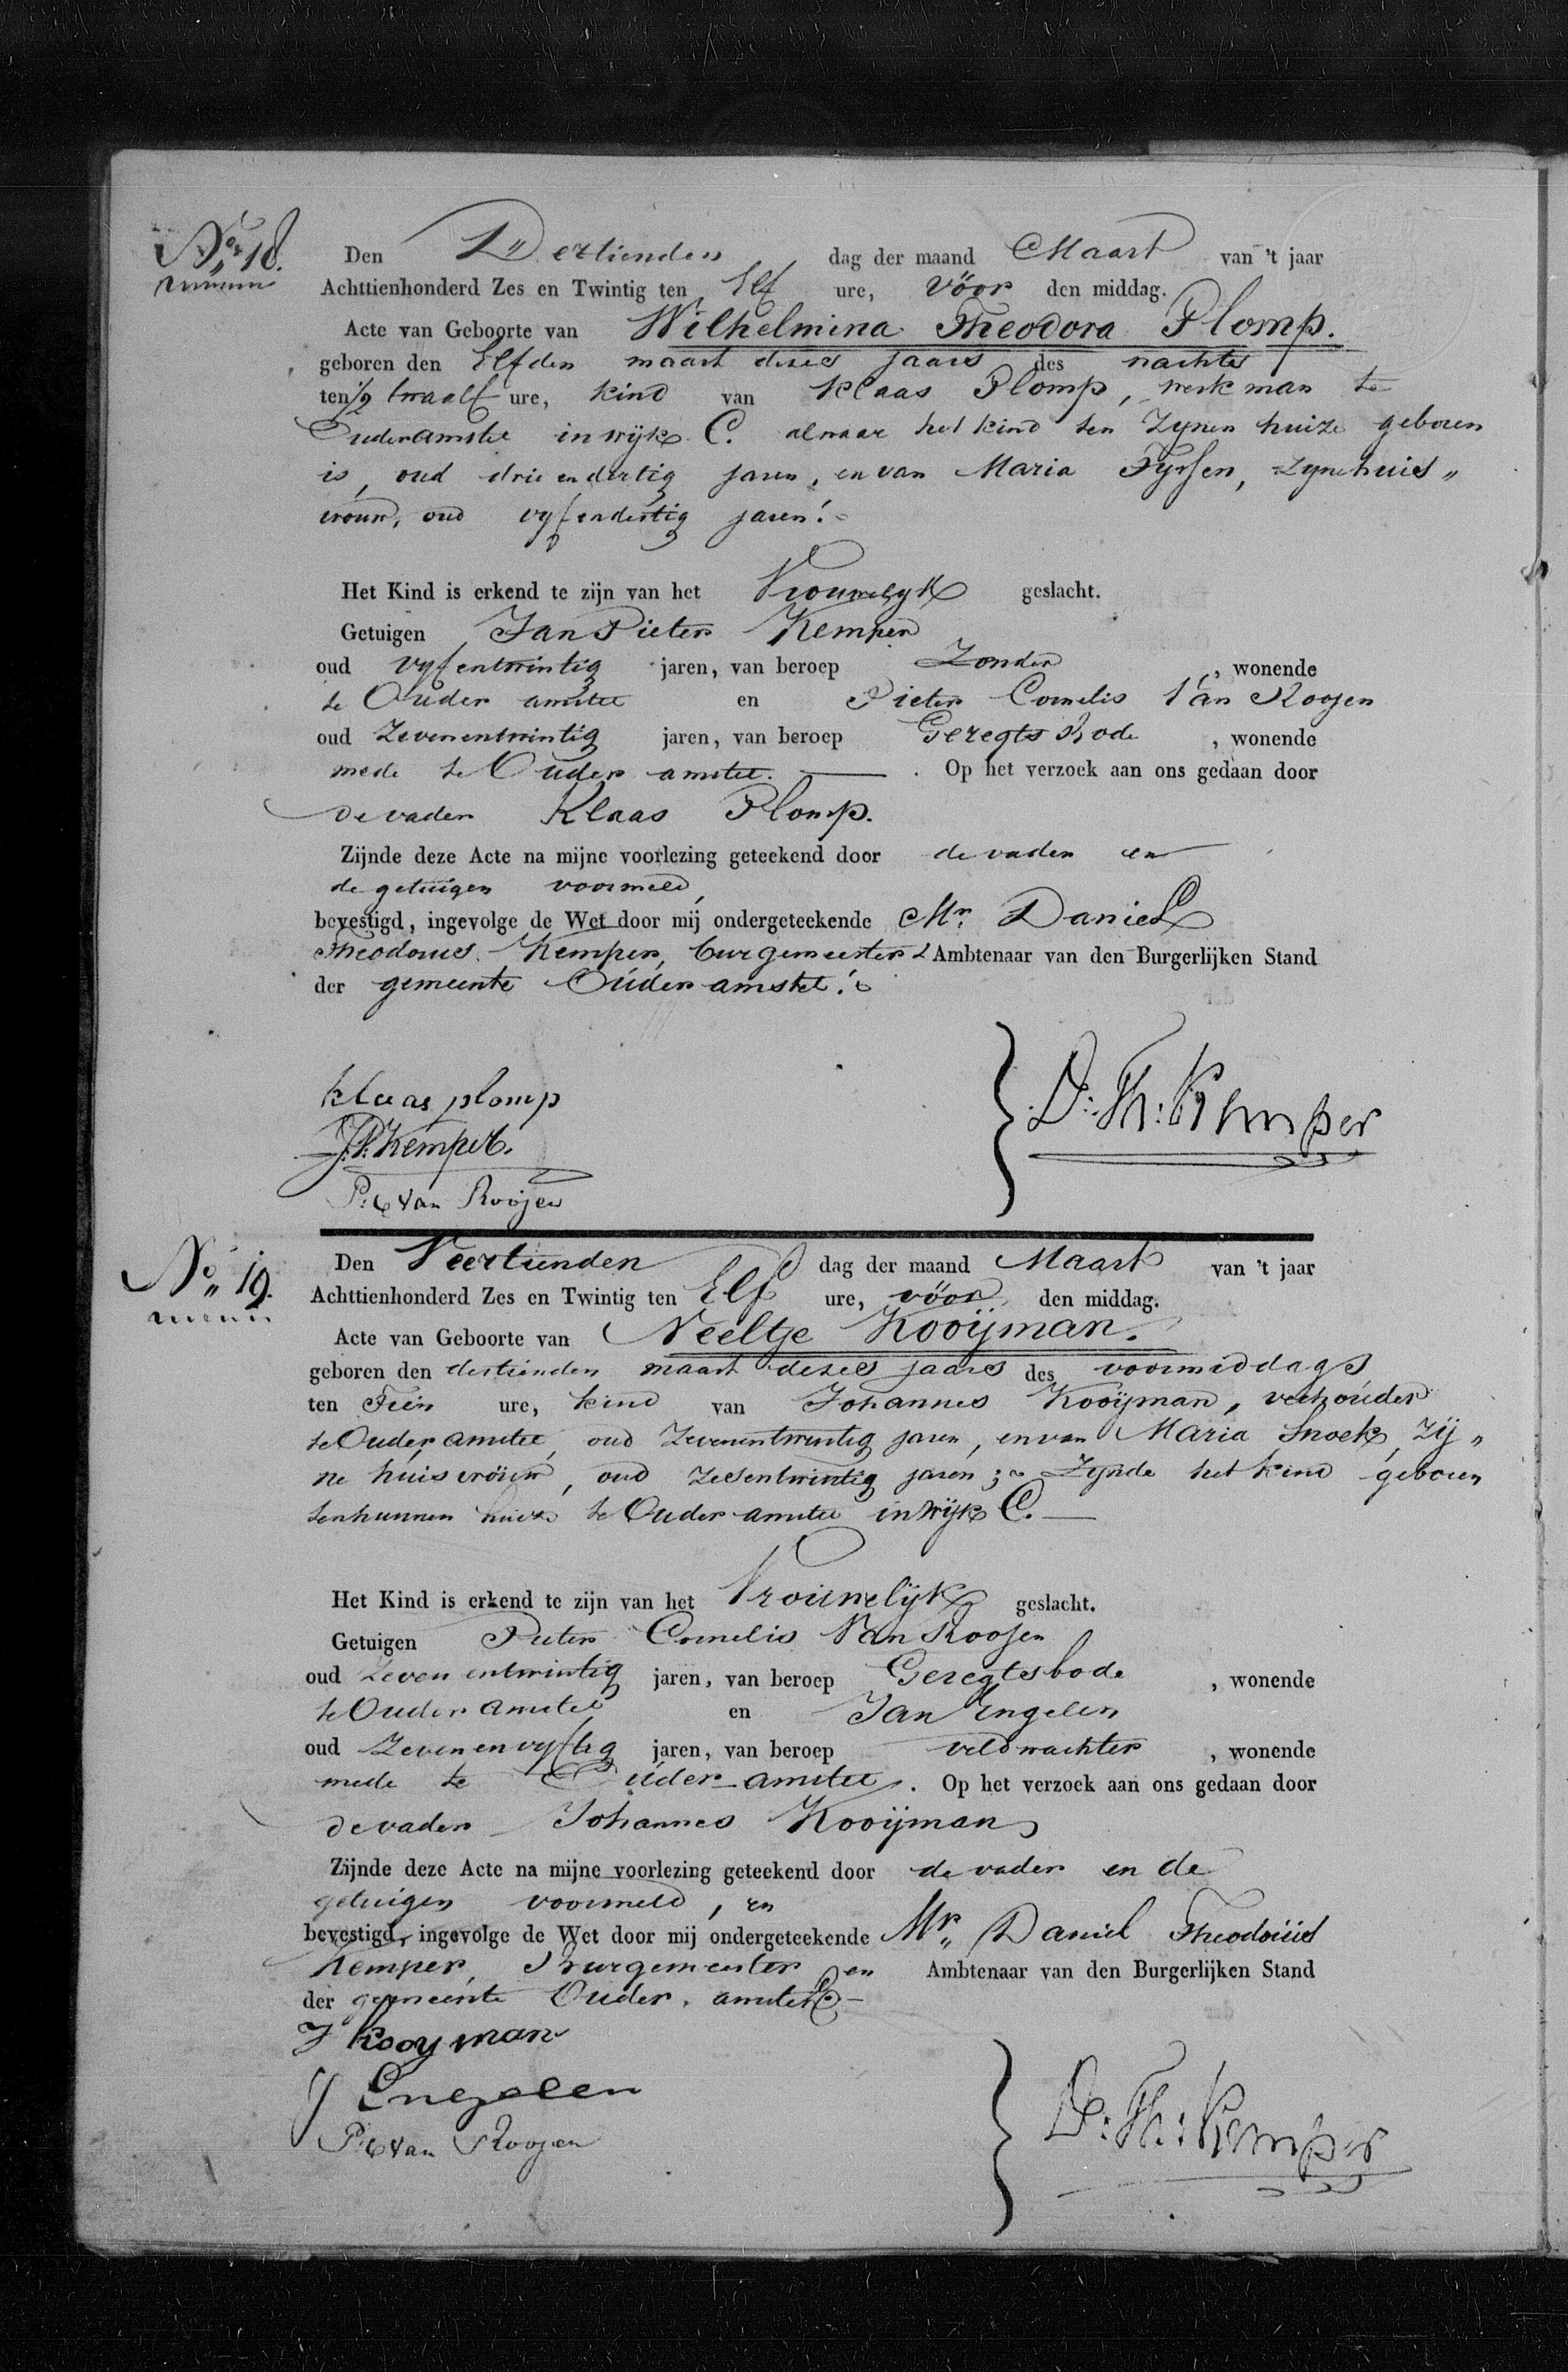 No. 18.
Den Dertienden dag der maand Maart van 't jaar
Achttienhonderd Zes en Twintig ten Elf ure, vöor den middag.
Acte van Geboorte van Wilhelmina Theodora Plomp.
geboren den Elfden maart dezes jaars des nachts
ten ½ twaalf ure, kind van Klaas Plomp, werkman te
Ouderamstel in wijk C. alwaar het kind ten Zynen huize geboren
is, oud drie en dertig jaren, en van Maria Tyssen, zyne huis„
vrouw, oud vyf en dertig jaren.
Het Kind is erkend te zijn van het Vrouwelyk geslacht.
Getuigen Jan Pieter Kemper
oud vyf entwintig jaren, van beroep Zonder, wonende
te Ouder amstel en Pieter Cornelis Van Roojen
oud Zevenentwintig jaren, van beroep Geregts Bode, wonende
mede te Ouder amstel. Op het verzoek aan ons gedaan door
de vader Klaas Plomp.
Zijnde deze Acte na mijne voorlezing geteekend door de vader en
de getuigen voormeld,
bevestigd, ingevolge de Wet door mij ondergeteekende Mr. Daniel
Theodorus Kemper, burgemeester & Ambtenaar van den Burgerlijken Stand
der gemeente Ouder amstel.
klaas plomp
J.P. Kemper.
D: Th: Kemper
P: C van Roojen
No. 19.
Den Veertienden dag der maand Maart van 't jaar
Achttienhonderd Zes en Twintig ten Elf ure, vöor den middag.
Acte van Geboorte van Neeltje Kooijman.
geboren den dertienden maart dezes jaars des voormiddags
ten Tien ure, kind van Johannes Kooijman, veehouder
te Ouder amstel, oud Zevenentwintig jaren, en van Maria Snoek, Zij„
ne huisvrouw, oud zesentwintig jaren; Zynde het kind geboren
ten hunnen huize te Ouder amstel in wijk C.
Het Kind is erkend te zijn van het Vrouwelijk geslacht.
Getuigen Pieter Cornelis Van Roojen
oud Zeven entwintig jaren, van beroep Geregtsbode, wonende
te Ouder amstel en Jan Engelen
oud Zevenenvyftig jaren, van beroep veldwachter, wonende
mede te Ouder amstel. Op het verzoek aan ons gedaan door
de vader Johannes Kooijman
Zijnde deze Acte na mijne voorlezing geteekend door de vader en de
getuigen voormeld, en
bevestigd, ingevolge de Wet door mij ondergeteekende Mr. Daniel Theodorus
Kemper, Burgemeester en Ambtenaar van den Burgerlijken Stand
der gemeente Ouder amstel
J Kooyman
J Engelen
D: Th: Kemper
P: C van Roojen